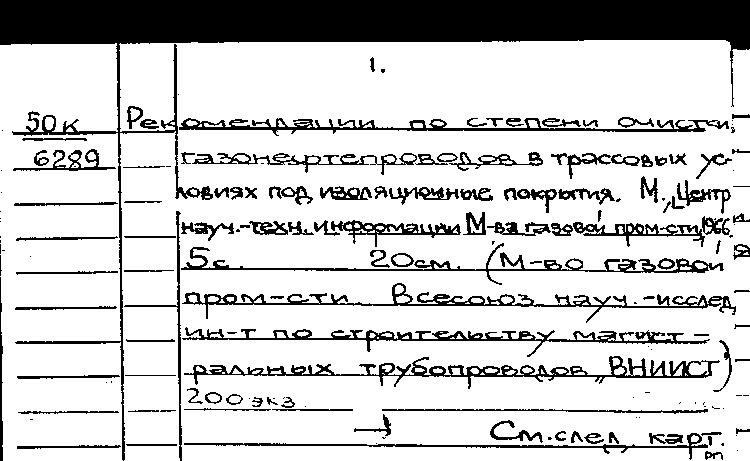 1.
50к Рекомендации по степени очистки
6289 газонефтепроводов в трассовых ус-
ловиях под изоляционные покрытия. М., Центр
науч.-техн. информации М-ва газовой пром-сти, 1966.
5с. 20см. (М-во газовой
пром-сти. Всесоюз. науч.-исслед.
ин-т по строительству магист-
ральных трубопроводов „ВНИИСТ")
200 экз.
См. след. карт.